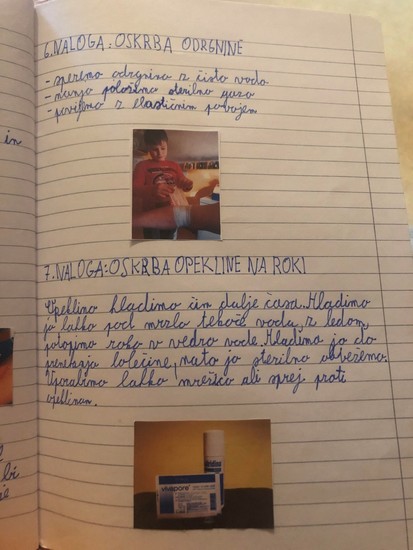 6. NALOGA: OSKRBA ODRGNINE
- speremo odrgnino z čisto vodo
- nanjo položimo sterilno gazo
- povijemo z elastičnim povojem
in
7. NALOGA: OSKRBA OPEKLINE NA ROKI
Opeklino hladimo čim dalje časa. Hladimo
jo lahko pod mrzlo tekočo vodo, z ledom,
potopimo roko v vedro vode. Hladimo jo do
prenehanja bolečine, nato jo sterilno obvežemo.
Uporabimo lahko mrežico ali sprej proti
opeklinam.
vivapore
bi